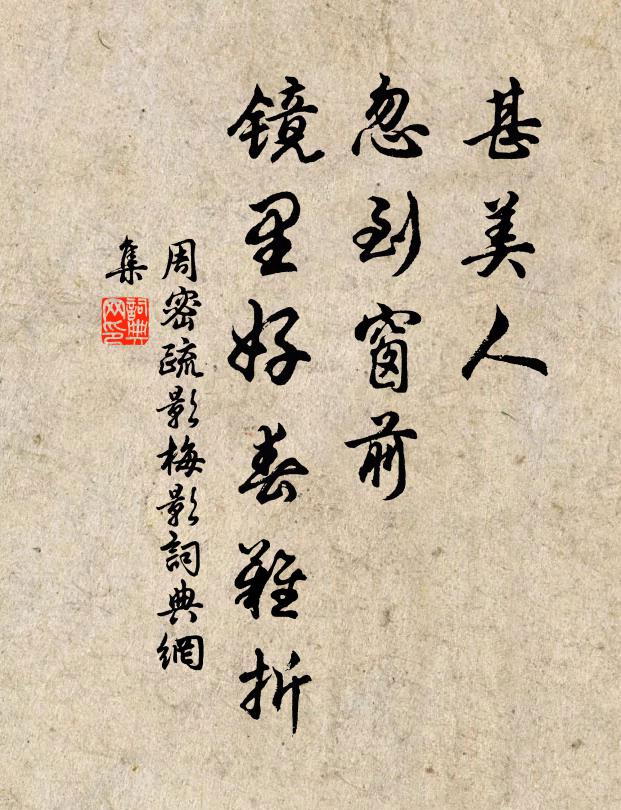 甚美人
忽到窗前
镜里好春難折
周密疏影梅影詞典網
集
詞典
网印